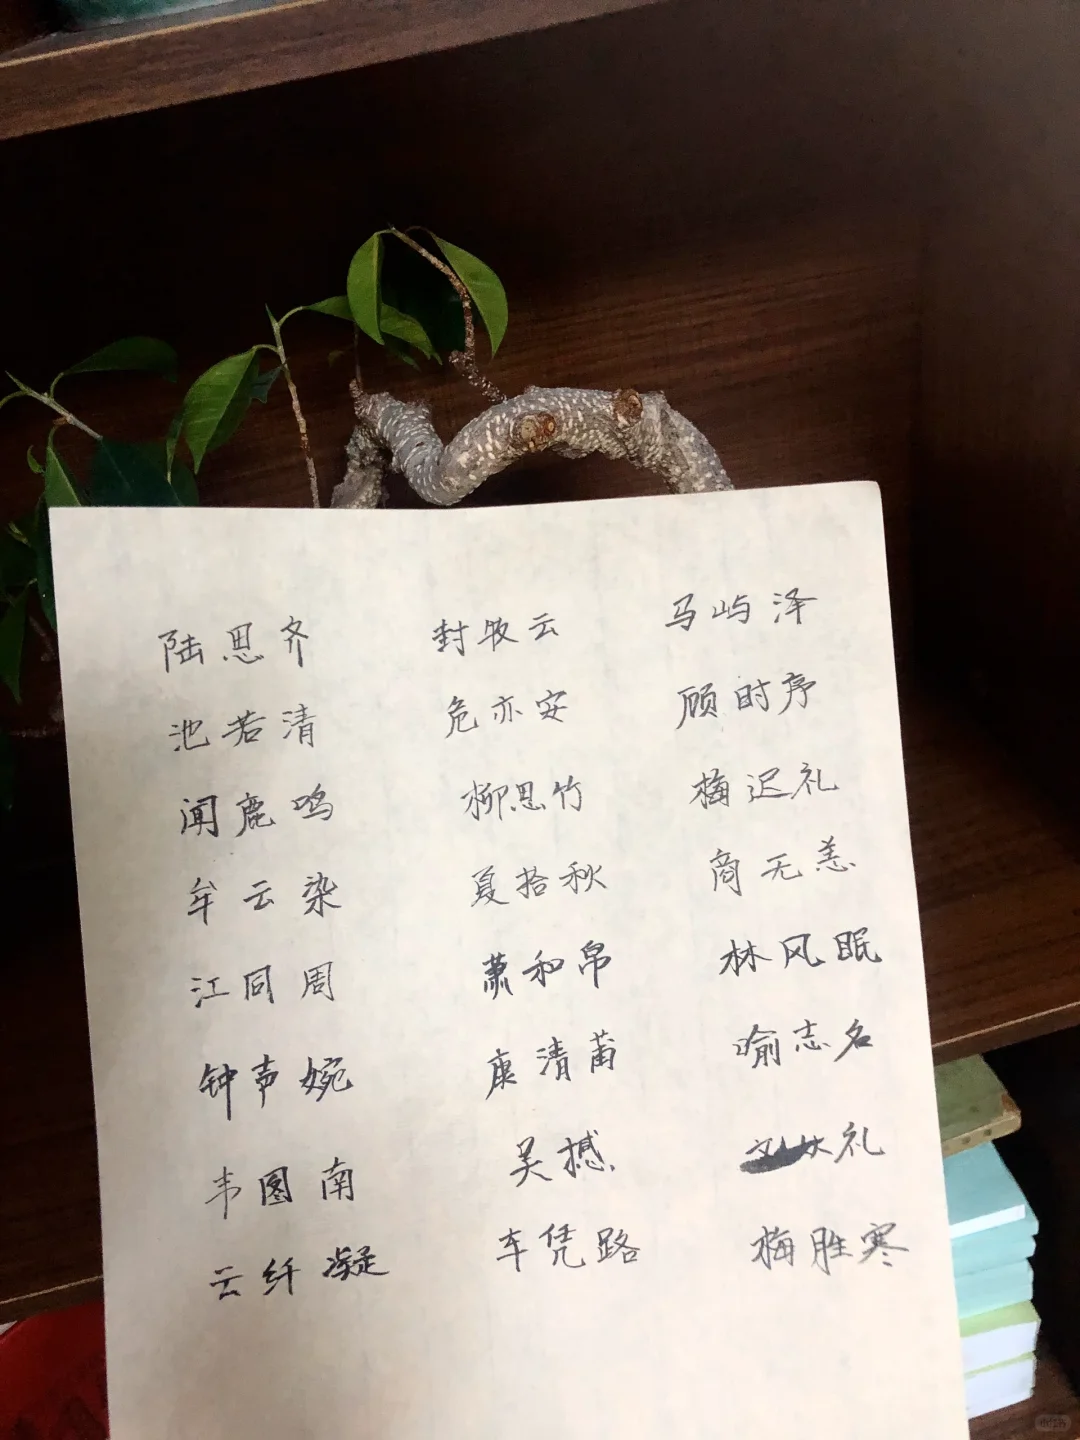 陆思齐 封牧云 马屿泽
池若清 危亦安 顾时序
闻鹿鸣 柳思竹 梅迟礼
牟云染 夏拾秋 商无恙
江同周 萧和帛 林风眠
钟声婉 康清莆 喻志名
韦图南 吴撼 礼
云纤凝 车凭路 梅胜寒